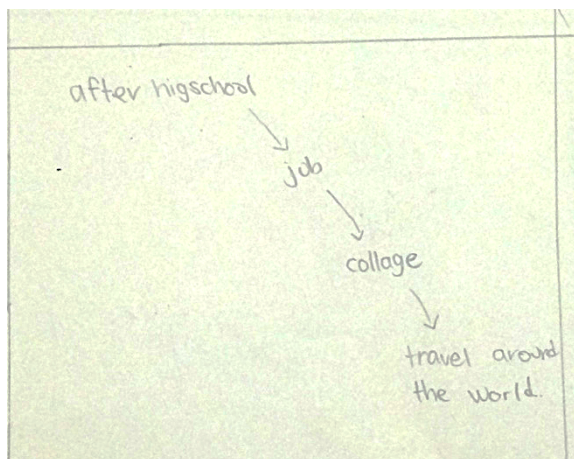 after higschool
job
collage
travel around
the world.